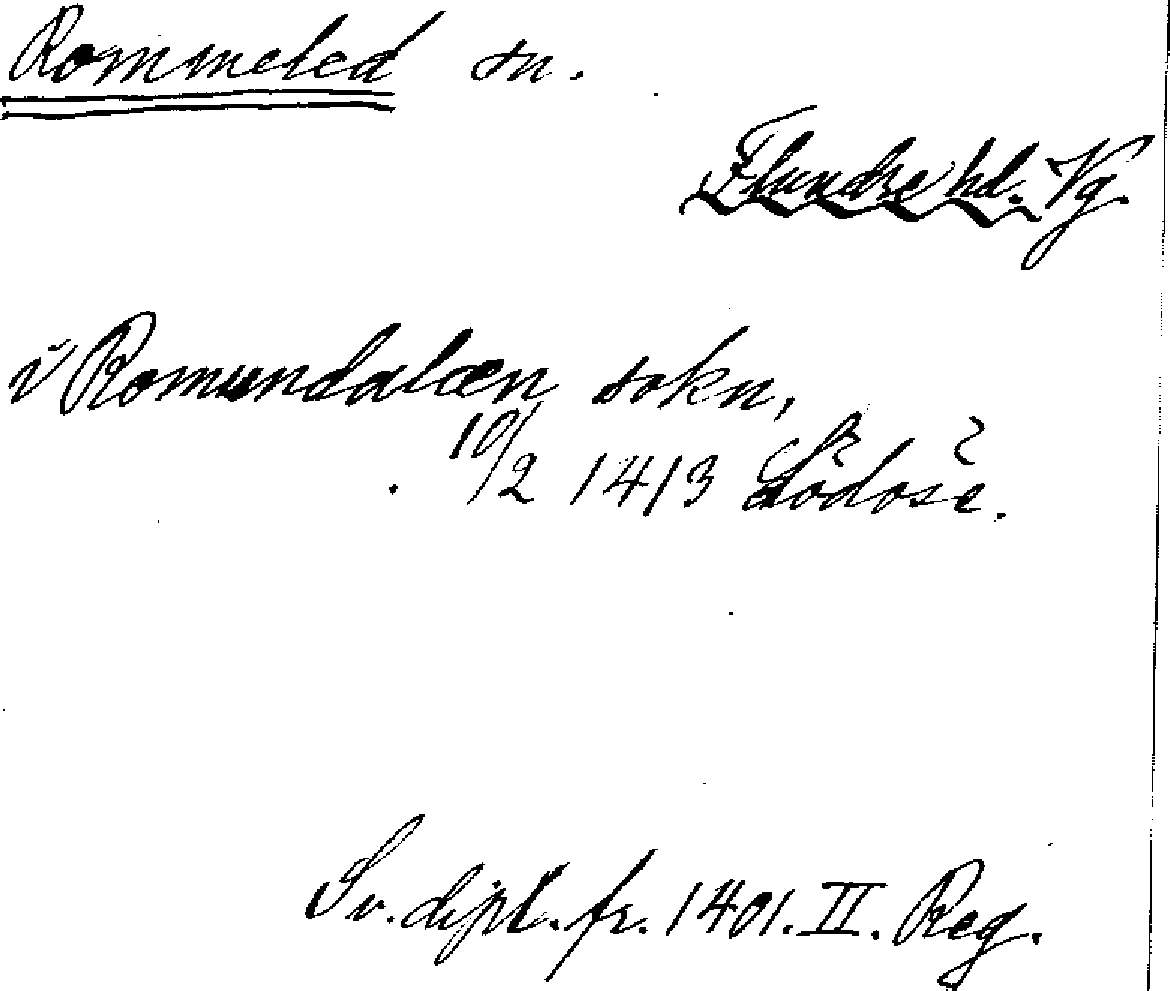 Rommeled sn.
Flundre hd. Vg.
i Romundalæn sokn,
10/2 1413 Lödose.
Sv. dipl. fr. 1401. II. Reg.